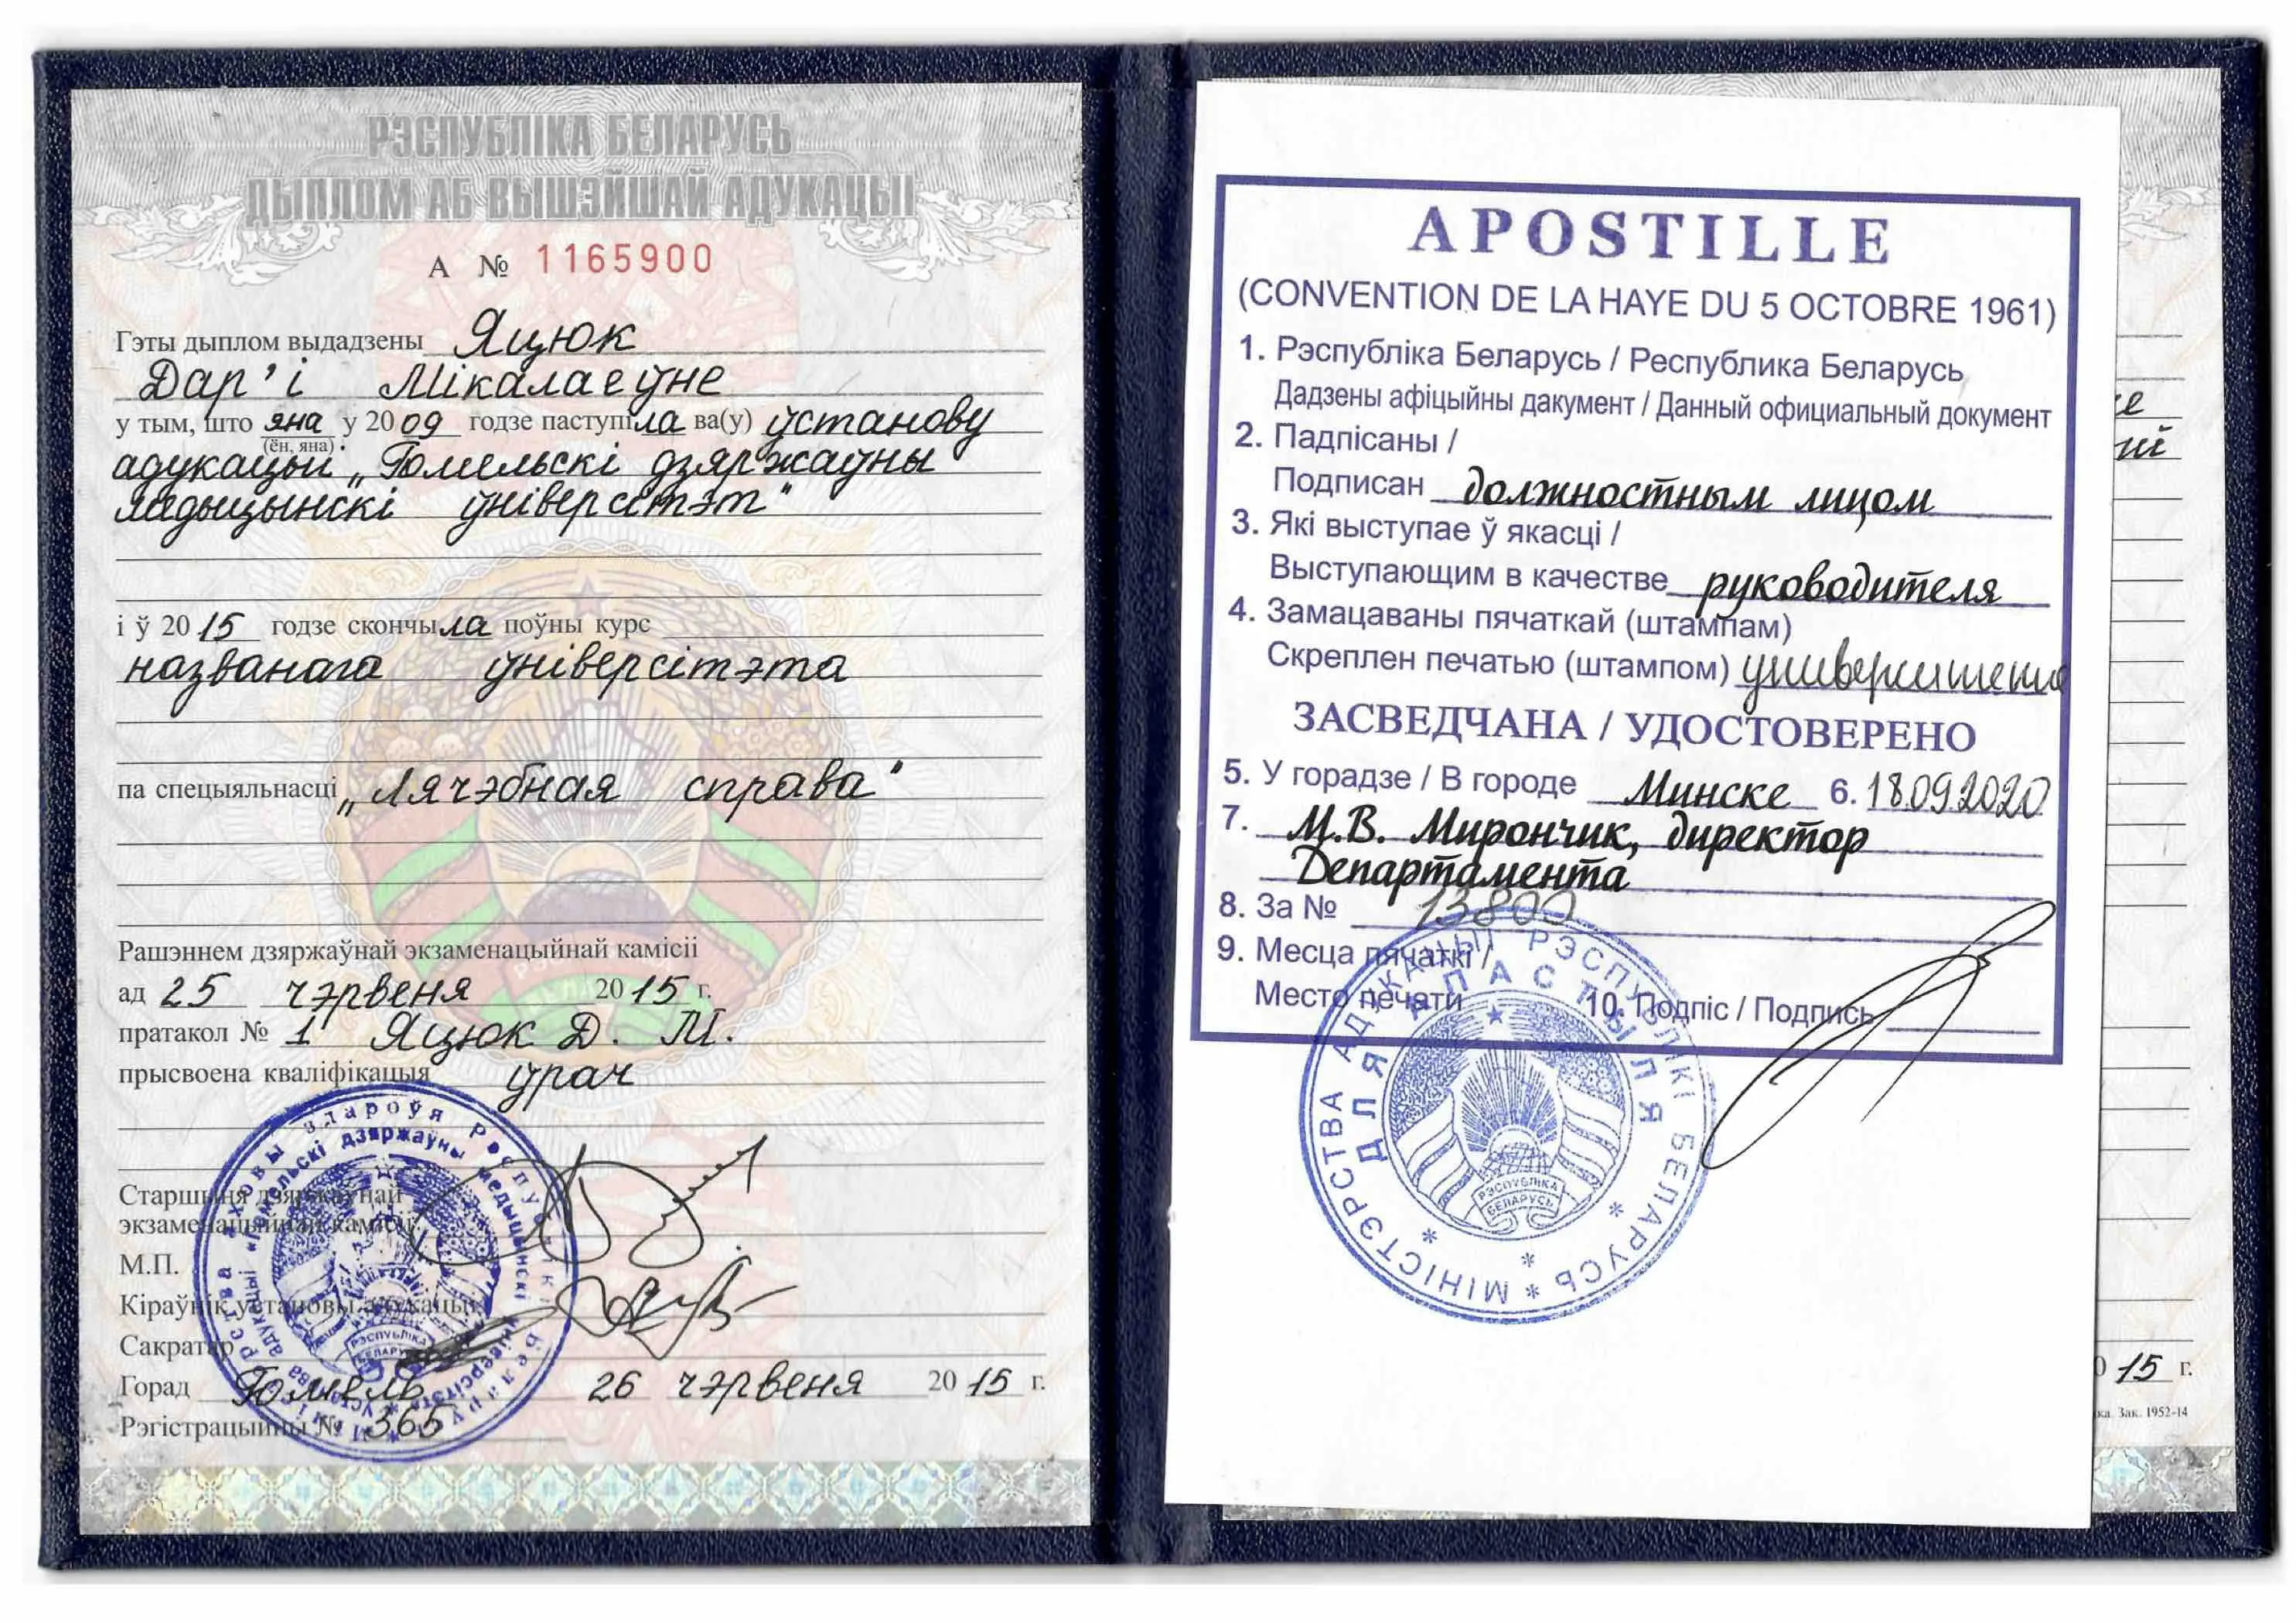 РЭСПУБЛІКА БЕЛАРУСЬ
ДЫПЛОМ АБ ВЫШЭЙШАЙ АДУКАЦЫІ
А № 1165900
Гэты дыплом выдадзены Яцюк
Дар'і Мікалаеўне
у тым, што яна у 2009 годзе паступіла ва(у) ўстанову
(ён, яна)
адукацыі „Гомельскі дзяржаўны
медыцынскі ўніверсітэт"
і ў 2015 годзе скончыла поўны курс
названага ўніверсітэта
па спецыяльнасці „Лячэбная справа"
Рашэннем дзяржаўнай экзаменацыйнай камісіі
ад 25 чэрвеня 2015 г.
пратакол № 1 Яцюк Д. М.
прысвоена кваліфікацыя ўрач
Старшыня дзяржаўнай
экзаменацыйнай камісіі
М.П.
Кіраўнік установы адукацыі
Сакратар
Горад Гомель 26 чэрвеня 2015 г.
Рэгістрацыйны № 365
Міністэрства аховы здароўя Рэспублікі Беларусь
Установа адукацыі «Гомельскі дзяржаўны медыцынскі ўніверсітэт»
РЭСПУБЛІКА
БЕЛАРУСЬ
APOSTILLE
(CONVENTION DE LA HAYE DU 5 OCTOBRE 1961)
1. Рэспубліка Беларусь / Республика Беларусь
Дадзены афіцыйны дакумент / Данный официальный документ
2. Падпісаны /
Подписан должностным лицом
3. Які выступае ў якасці /
Выступающим в качестве руководителя
4. Замацаваны пячаткай (штампам)
Скреплен печатью (штампом) университета
ЗАСВЕДЧАНА / УДОСТОВЕРЕНО
5. У горадзе / В городе Минске 6. 18.09.2020
7. М.В. Мирончик, директор
Департамента
8. За № 13800
9. Месца пячаткі /
Место печати 10. Подпіс / Подпись
МІНІСТЭРСТВА АДУКАЦЫІ РЭСПУБЛІКІ БЕЛАРУСЬ
ДЛЯ АПАСТЫЛЯ
РЭСПУБЛІКА
БЕЛАРУСЬ
15 г.
Зак. 1952-14